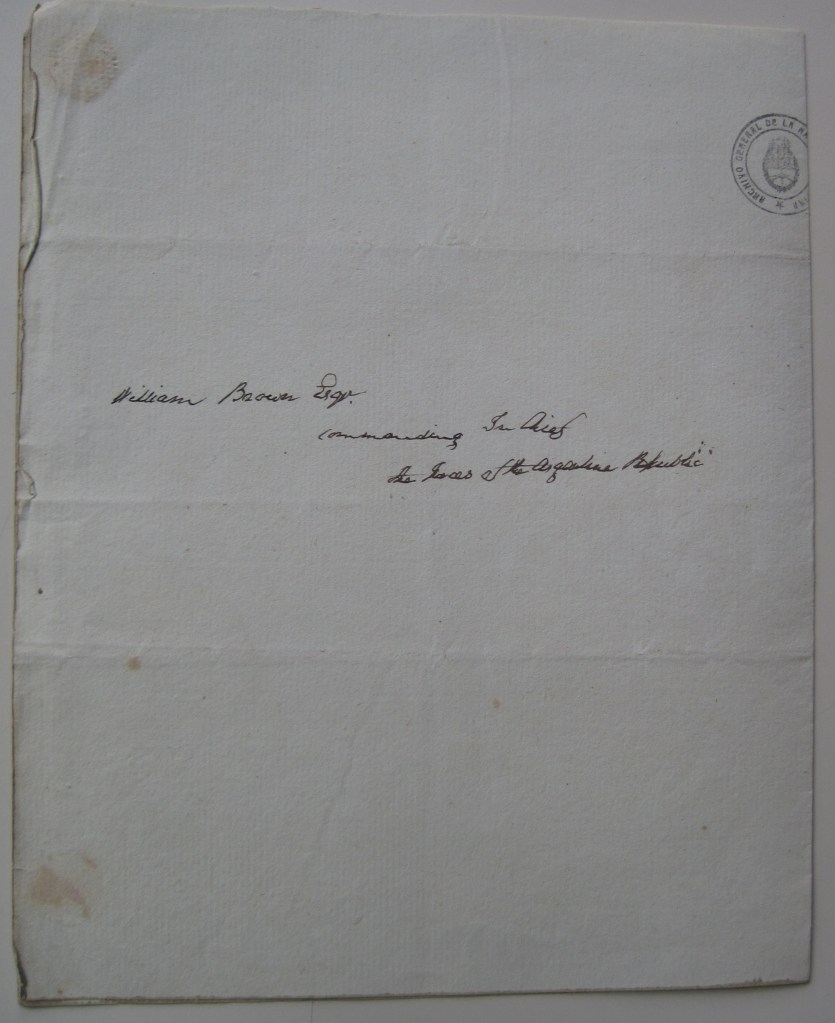 William Brown Esqr.
commanding In Chief
the Forces of the Argentine Republic
ARCHIVO GENERAL DE LA